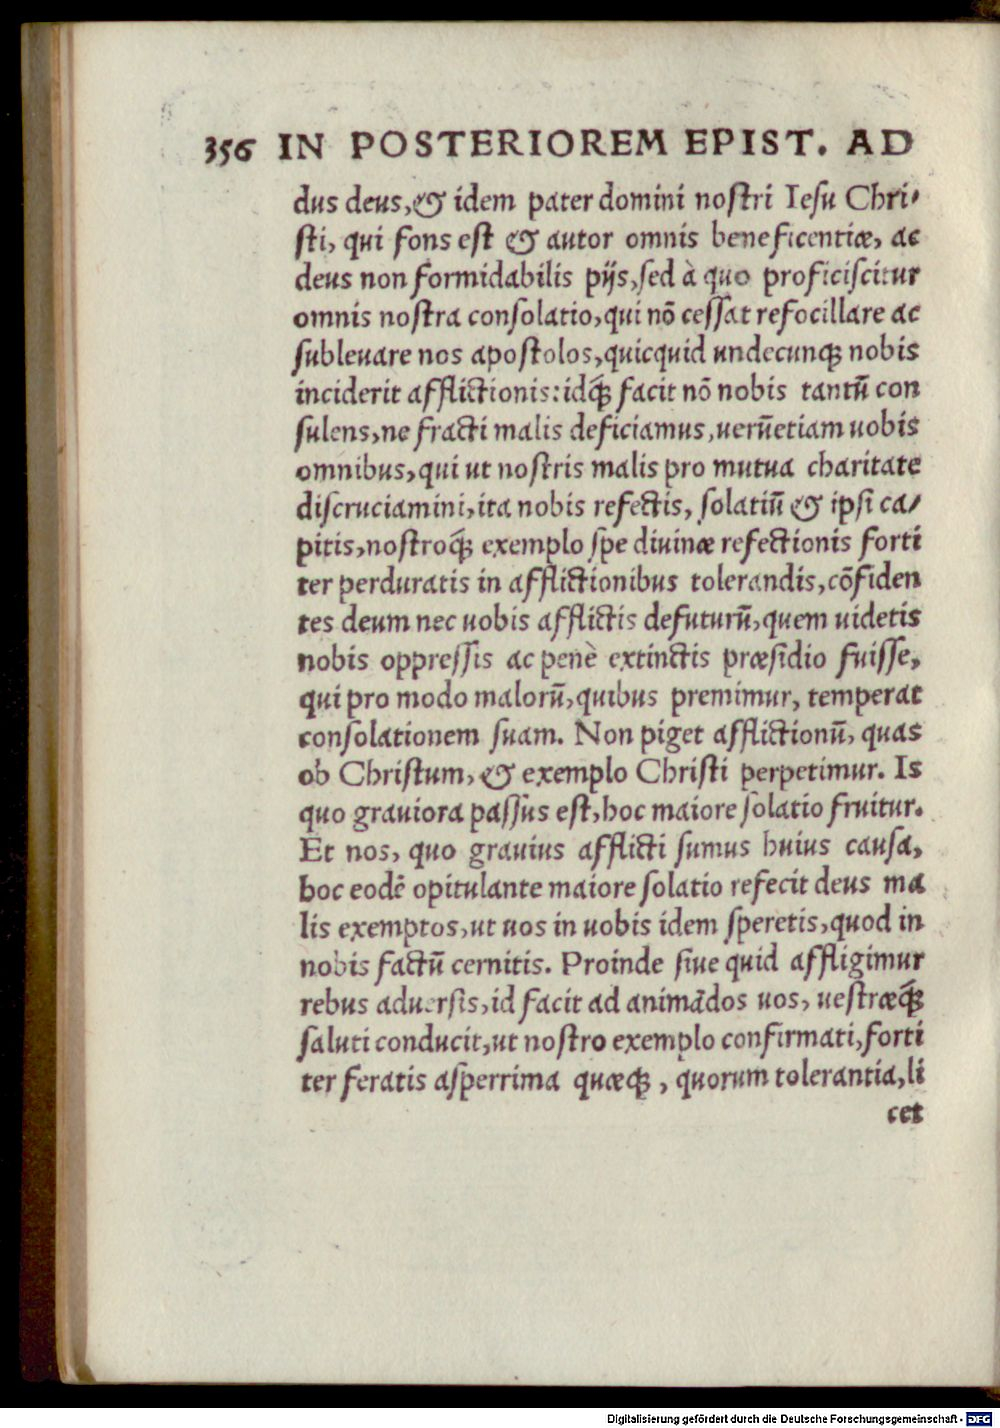 356 IN POSTERIOREM EPIST. AD
dus deus, & idem pater domini nostri Iesu Chri-
sti, qui fons est & autor omnis beneficentiæ, ac
deus non formidabilis pijs, sed à quo proficiscitur
omnis nostra consolatio, qui nõ cessat refocillare ac
subleuare nos apostolos, quicquid undecunq; nobis
inciderit afflictionis: idq́; facit nõ nobis tantũ con
sulens, ne fracti malis deficiamus, uerũetiam uobis
omnibus, qui ut nostris malis pro mutua charitate
discruciamini, ita nobis refectis, solatiũ & ipsi ca-
pitis, nostroq́; exemplo spe diuinæ refectionis forti
ter perduratis in afflictionibus tolerandis, cõfiden
tes deum nec uobis afflictis defuturũ, quem uidetis
nobis oppressis ac penè extinctis præsidio fuisse,
qui pro modo malorũ, quibus premimur, temperat
consolationem suam. Non piget afflictionũ, quas
ob Christum, & exemplo Christi perpetimur. Is
quo grauiora passus est, hoc maiore solatio fruitur.
Et nos, quo grauius afflicti sumus huius causa,
hoc eodẽ opitulante maiore solatio refecit deus ma
lis exemptos, ut uos in uobis idem speretis, quod in
nobis factũ cernitis. Proinde siue quid affligimur
rebus aduersis, id facit ad animãdos uos, uestræq́;
saluti conducit, ut nostro exemplo confirmati, forti
ter feratis asperrima quæq;, quorum tolerantia, li
cet
Digitalisierung gefördert durch die Deutsche Forschungsgemeinschaft - DFG